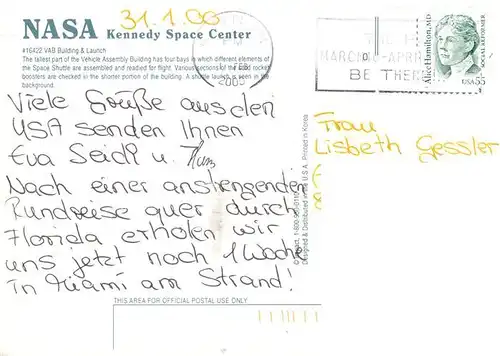 NASA Kennedy Space Center
31.1.00
#16422 VAB Building & Launch
The tallest part of the Vehicle Assembly Building has four bays in which different elements of
the Space Shuttle are assembled and readied for flight. Various sections of the rocket
boosters are checked in the shorter portion of the building. A shuttle launch is seen in the
background.
BE THERE
Alice Hamilton, MD
SOCIAL REFORMER
USA 55
Viele Grüße aus den
USA senden Ihnen
Eva Seidl u.
Nach einer anstrengenden
Rundreise quer durch
Florida erholen wir
uns jetzt noch 1 Woche
in Miami am Strand!
Frau
Lisbeth Gessler
Designed & Distributed in the U.S.A. Printed in Korea
THIS AREA FOR OFFICIAL POSTAL USE ONLY